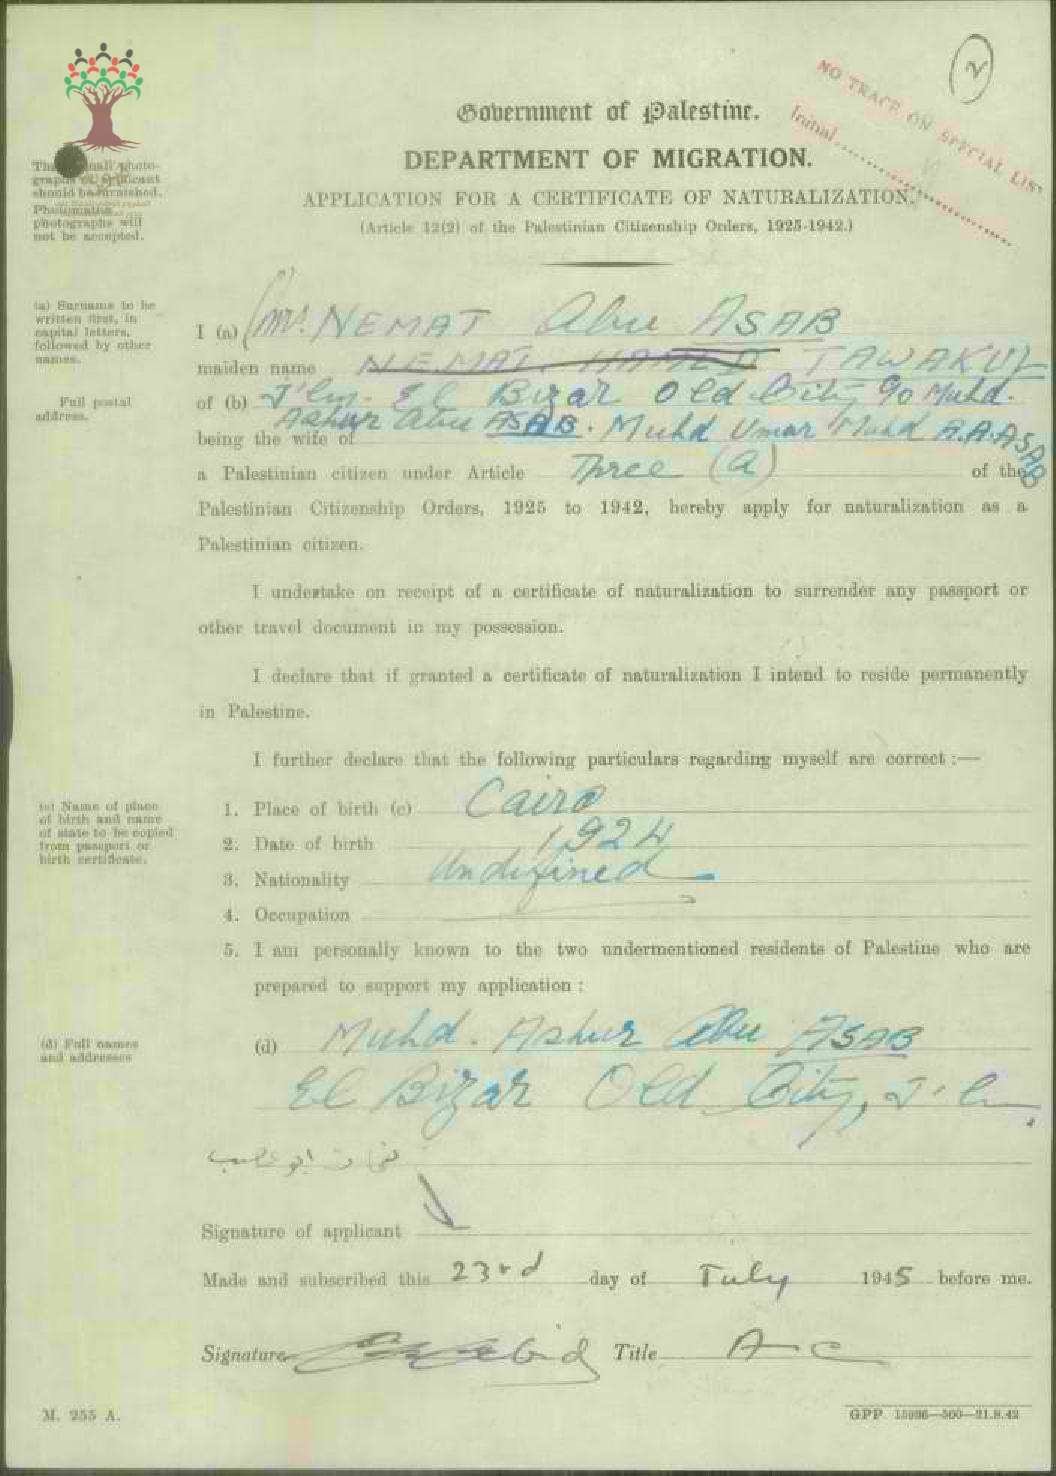 2
NO TRACE ON SPECIAL LIST
Initial
Government of Palestine.
DEPARTMENT OF MIGRATION.
APPLICATION FOR A CERTIFICATE OF NATURALIZATION.
(Article 12(2) of the Palestinian Citizenship Orders, 1925-1942.)
photo-
graphs of applicant
should be furnished.
Photomaton
photographs will
not be accepted.
(a) Surname to be
written first, in
capital letters,
followed by other
names.
I (a) (Mrs. NEMAT Abu ASAB
maiden name NEMAT TAWAKUL
Full postal
address.
of (b) J'lm. El Bizar Old City c/o Muhd.
Ashur Abu ASAB. Muhd Umar Muhd A.A.ASAB
being the wife of
a Palestinian citizen under Article Three (a) of the
Palestinian Citizenship Orders, 1925 to 1942, hereby apply for naturalization as a
Palestinian citizen.
I undertake on receipt of a certificate of naturalization to surrender any passport or
other travel document in my possession.
I declare that if granted a certificate of naturalization I intend to reside permanently
in Palestine.
I further declare that the following particulars regarding myself are correct :—
(c) Name of place
of birth and name
of state to be copied
from passport or
birth certificate.
1. Place of birth (c) Cairo
2. Date of birth 1924
3. Nationality Undefined
4. Occupation
5. I am personally known to the two undermentioned residents of Palestine who are
prepared to support my application :
(d) Full names
and addresses
(d) Muhd. Ashur Abu ASAB
El Bizar Old City, J'lm
ابو عصب
Signature of applicant
Made and subscribed this 23rd day of July 1945 before me.
Signature Title A C
M. 255 A.
GPP. 15926—500—21.8.42